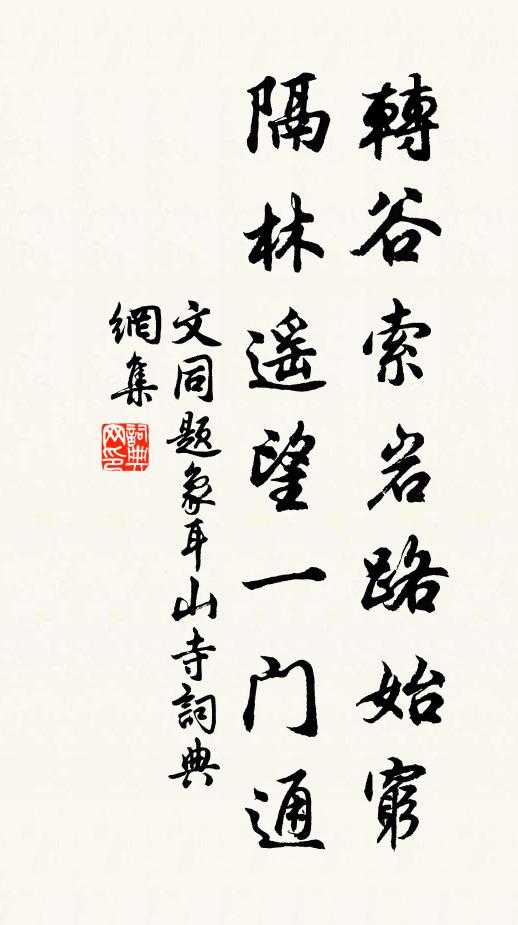 轉谷索岩路始窮
隔林遥望一门通
文同題象耳山寺詞典
網集
詞典
网印